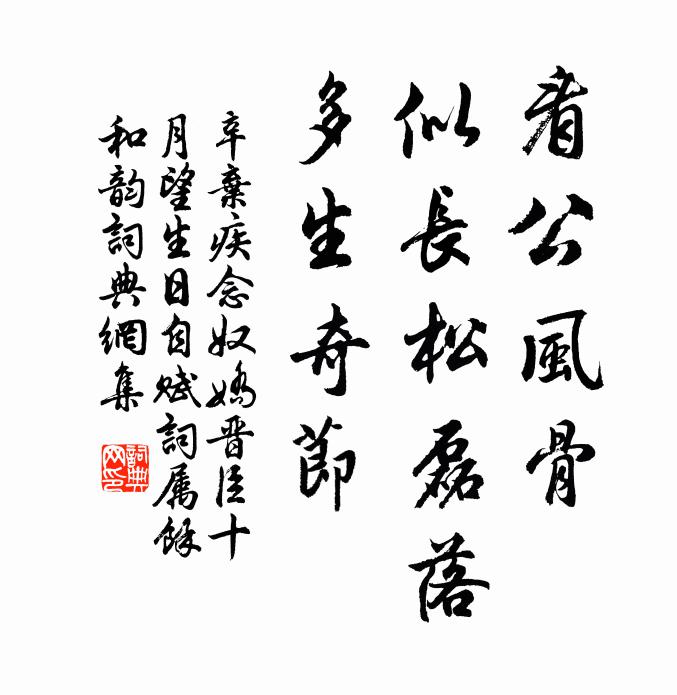 看公風骨
似長松磊落
多生奇節
辛棄疾念奴嬌晋臣十
月望生日自賦詞属餘
和韵詞典網集
詞典網印